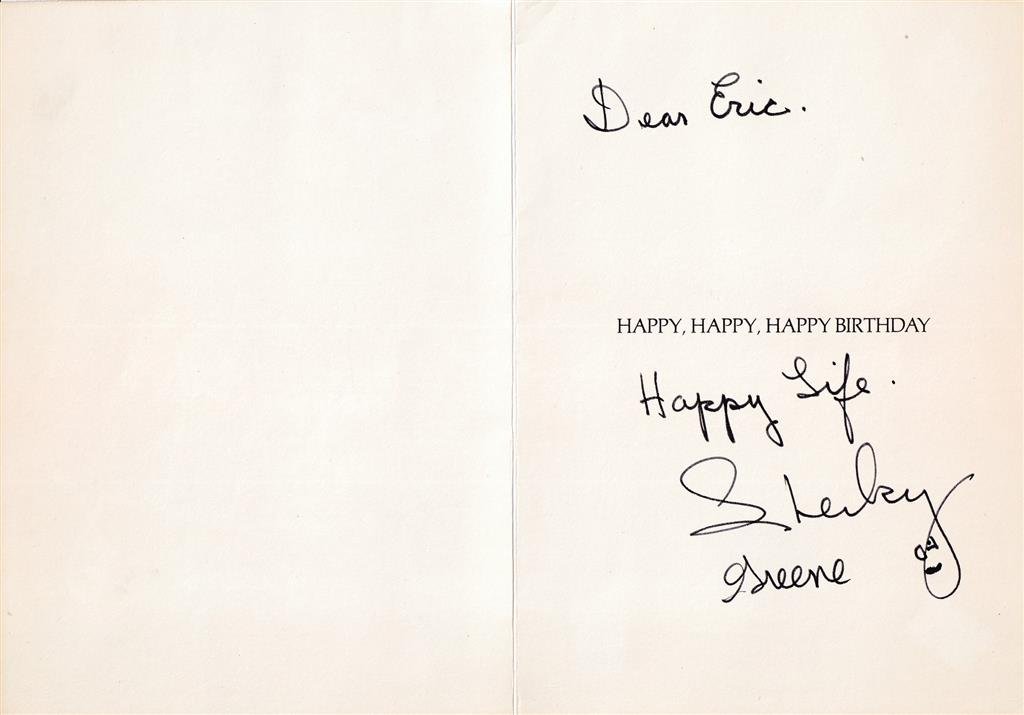 Dear Eric.
HAPPY, HAPPY, HAPPY BIRTHDAY
Happy Life.
Greene